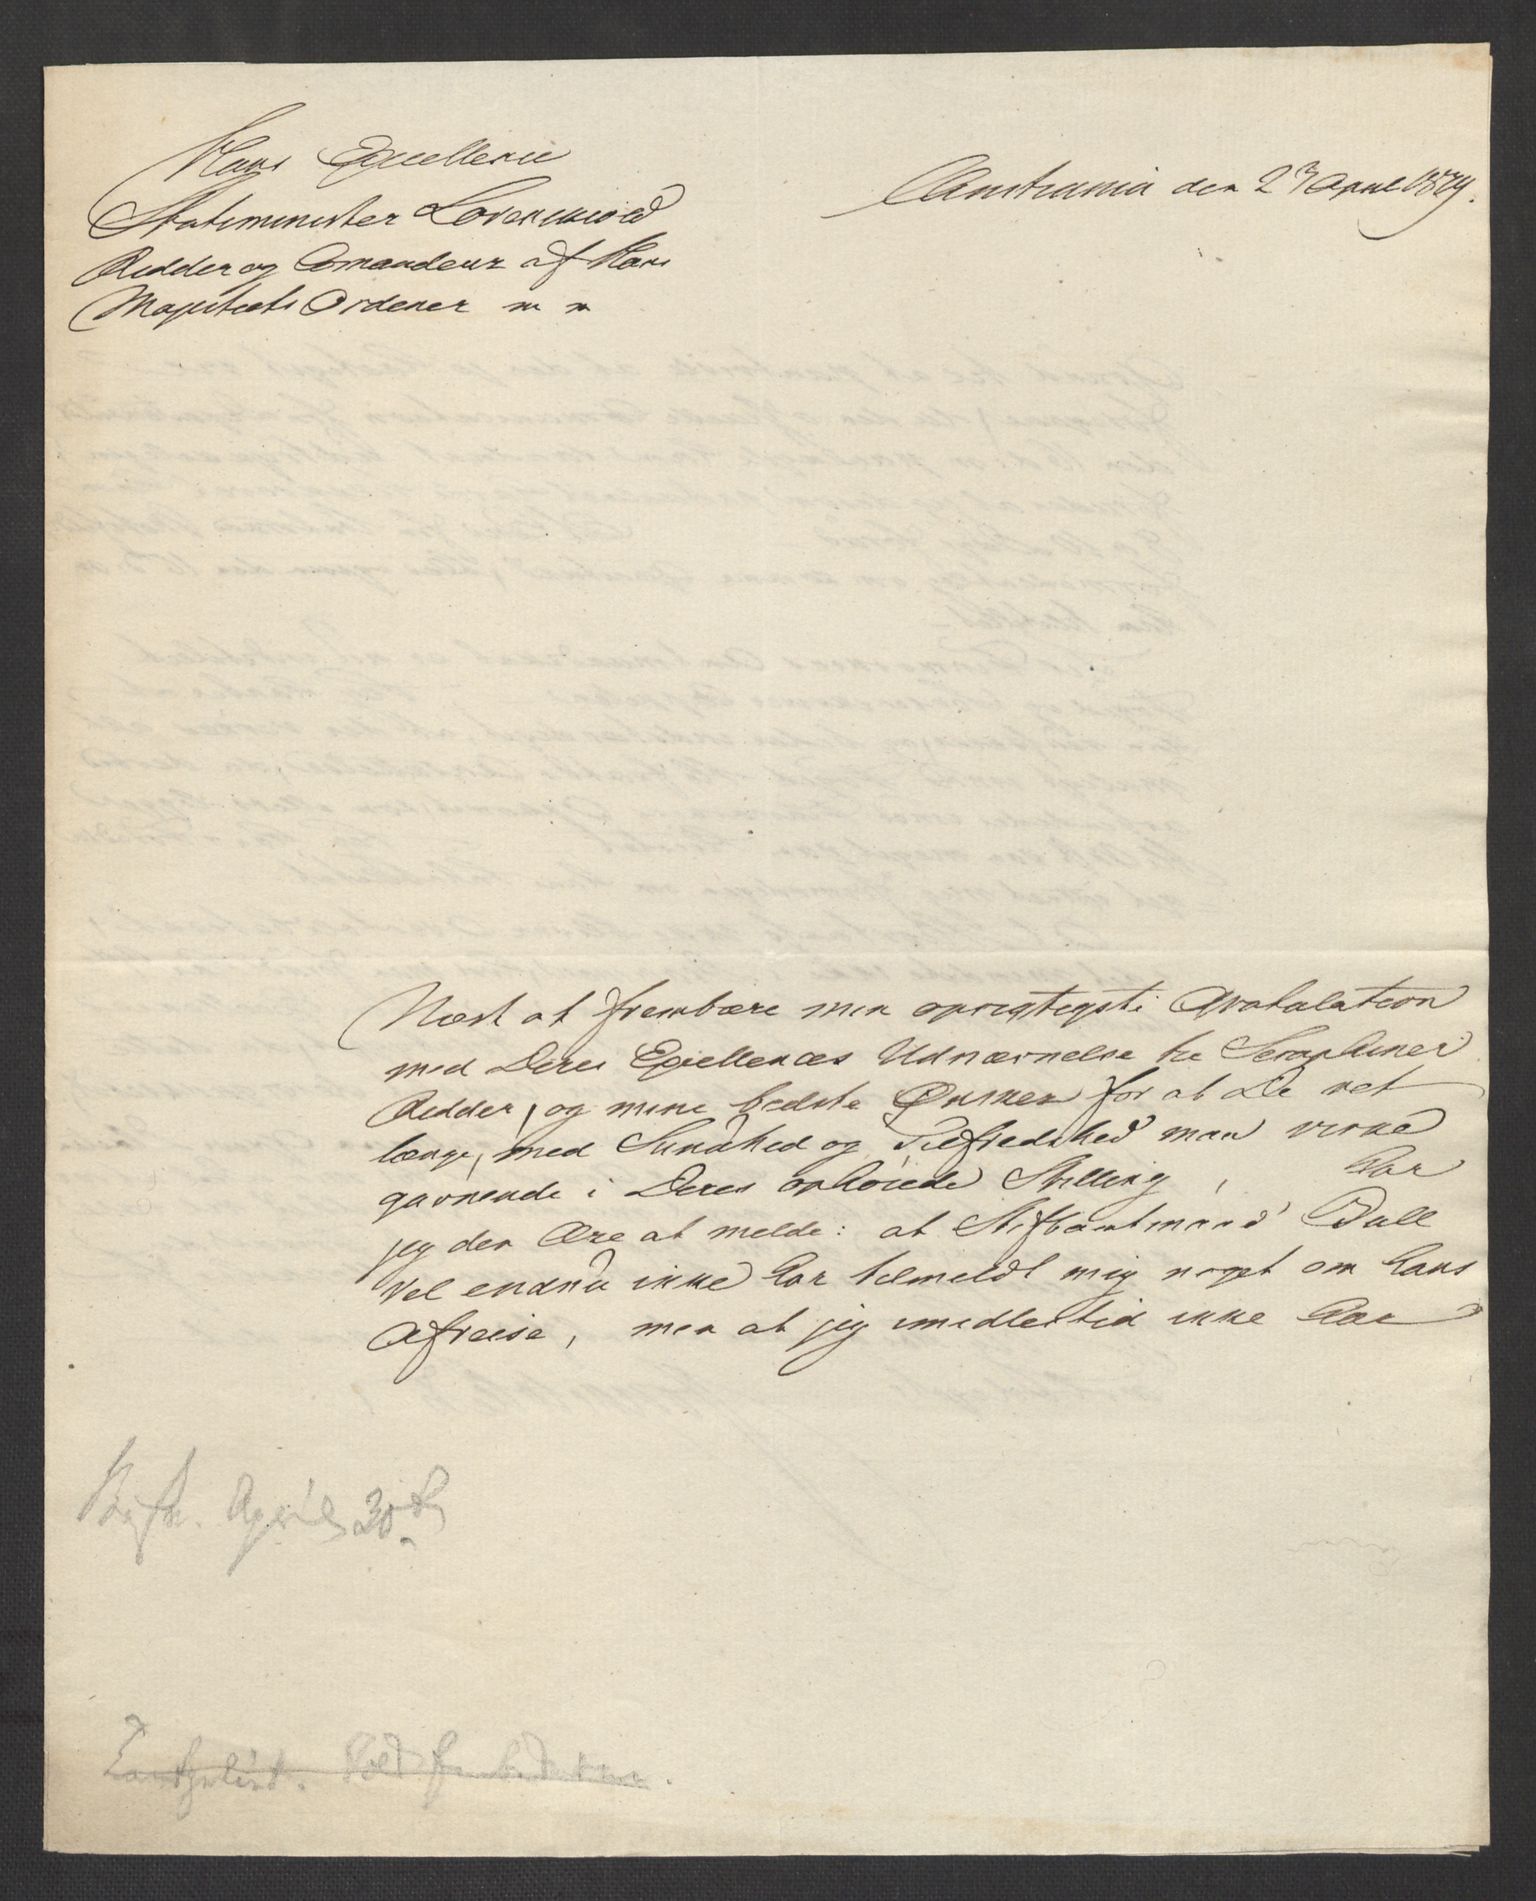 Hans Excellence
Statsminister Løvenskiold
Ridder og Comandeur af Hans
Majestæts Ordener m m
Christiania den 23 April 1829.
Næst at frembære min oprigtigste Gratulation
med Deres Excellences Udnævnelse til Seraphiner
Ridder, og mine bedste Ønsker for at De ret
længe, med Sundhed og Tilfredshed maa virke
gavnende i Deres ophøiede Stilling, har
jeg den Ære at melde: at Stiftamtmand Bull
vel endnu ikke har tilmeldt mig noget om hans
Afreise, men at jeg imidlertid ikke har
April 30